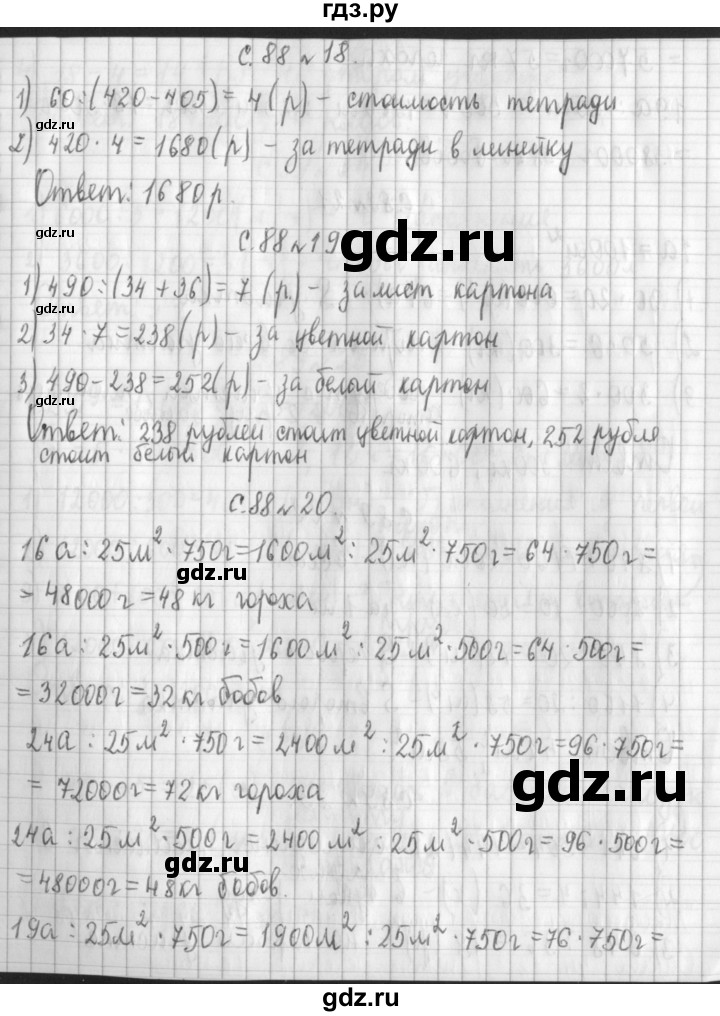 гдз.ру
С. 88 № 18.
1) 60:(420-405)= 4(р) - стоимость тетради
gdz.ru
2) 420·4=1680(р) - за тетради в линейку
Ответ: 1680р.
gdz.ru
gdz.ru
С. 88 № 19
1) 490:(34+36)=7 (р.) - за лист картона
gdz.ru
2) 34·7=238(р) - за цветной картон
3) 490-238=252(р) - за белый картон
gdz.ru
Ответ: 238 рублей стоит цветной картон, 252 рубля
стоит белый картон
С. 88 № 20.
16а:25м²·750г=1600м²:25м²·750г=64·750г=
gdz.ru
=48000г=48кг гороха
16а:25м²·500г=1600м²:25м²·500г=64·500г=
=32000г=32кг бобов
24а:25м²·750г=2400м²:25м²·750г=96·750г=
gdz.ru
=72000г=72кг гороха
24а:25м²·500г=2400м²:25м²·500г=96·500г=
gdz.ru
=48000г=48кг бобов.
19а:25м²·750г=1900м²:25м²·750г=76·750г=
gdz.ru